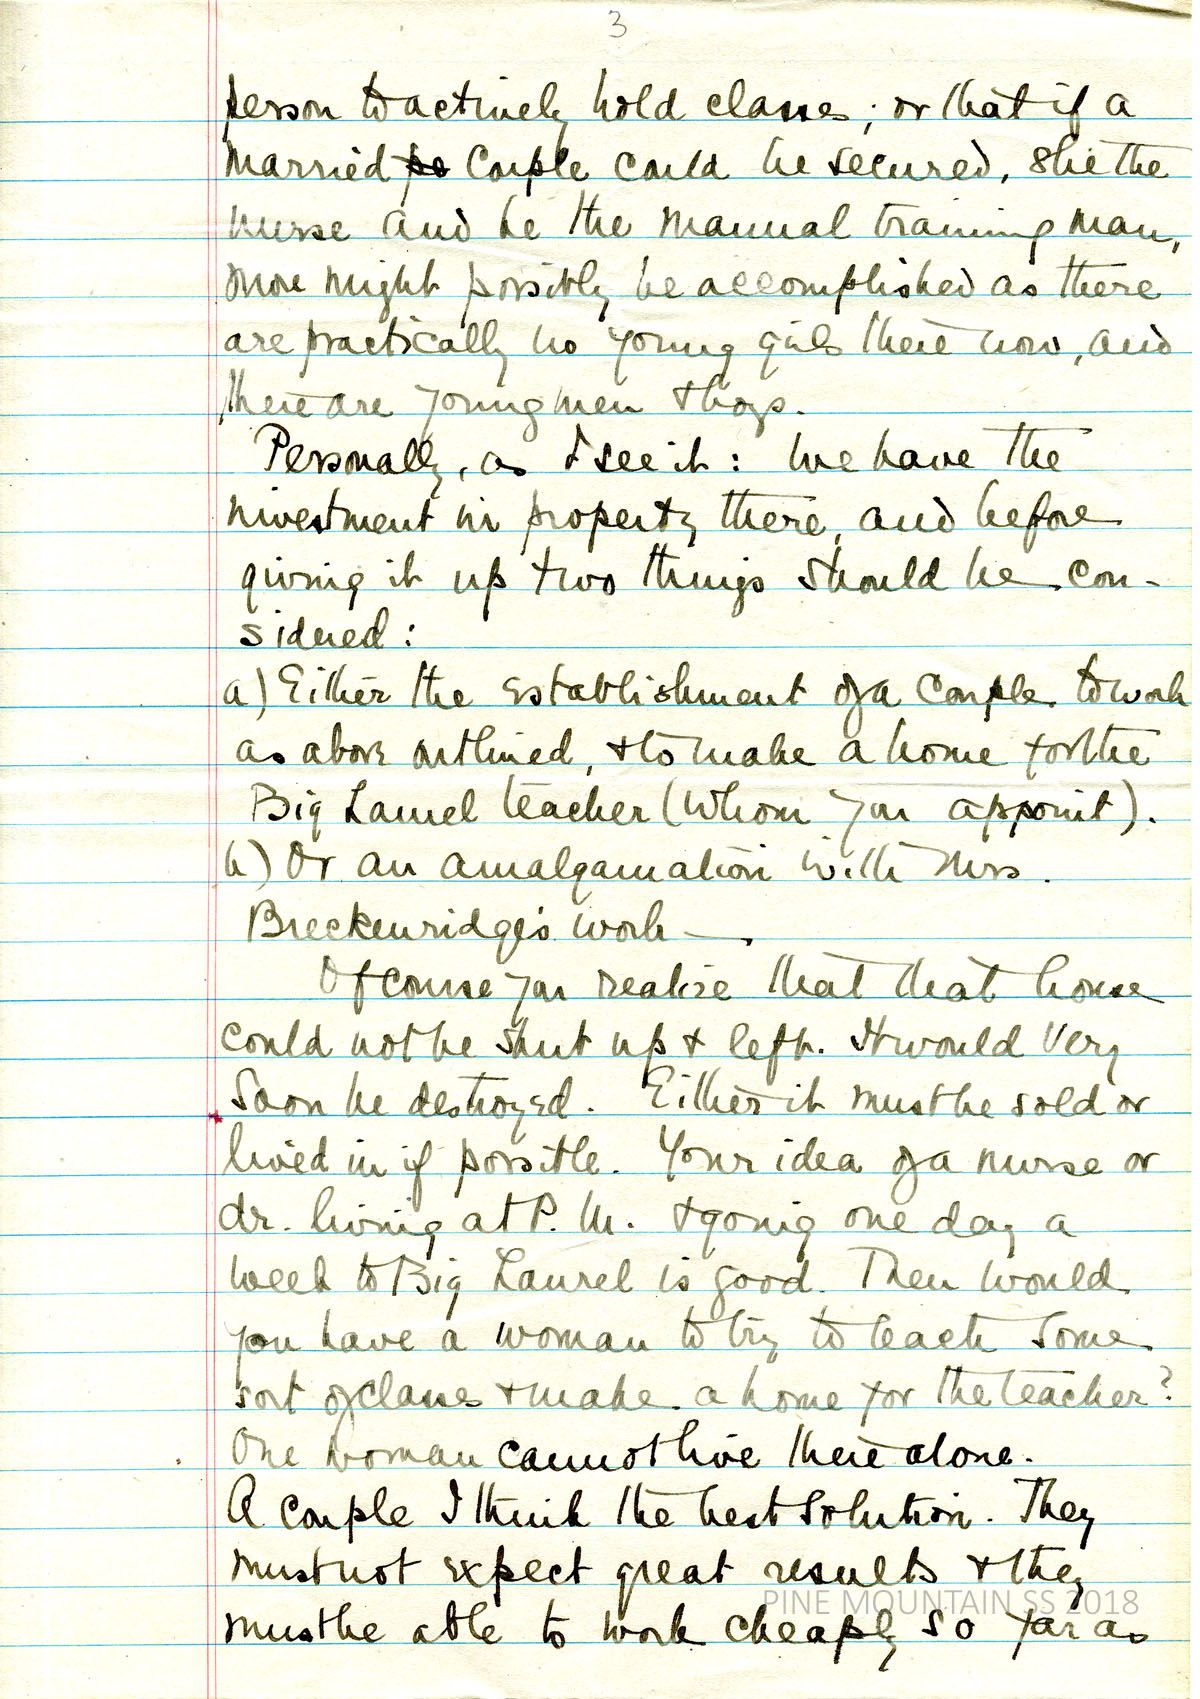 3
person to actively hold classes; or that if a
married po couple could be secured, she the
nurse and he the manual training man,
more might possibly be accomplished as there
are practically no young girls there now, and
there are young men & boys.
Personally, as I see it: We have the
investment in property there, and before
giving it up two things should be con-
sidered:
a) Either the establishment of a couple to work
as above outlined, & to make a home for the
Big Laurel teacher (whom you appoint).
b) Or an amalgamation with Mrs.
Breckenridge's work —.
Of course you realize that that house
could not be shut up & left. It would very
soon be destroyed. Either it must be sold or
lived in if possible. Your idea of a nurse or
dr. living at P. M. & going one day a
week to Big Laurel is good. Then would
you have a woman to try to teach some
sort of classes & make a home for the teacher?
One woman cannot live there alone.
A couple I think the best solution. They
must not expect great results & they
must be able to work cheaply so far as
PINE MOUNTAIN SS 2018